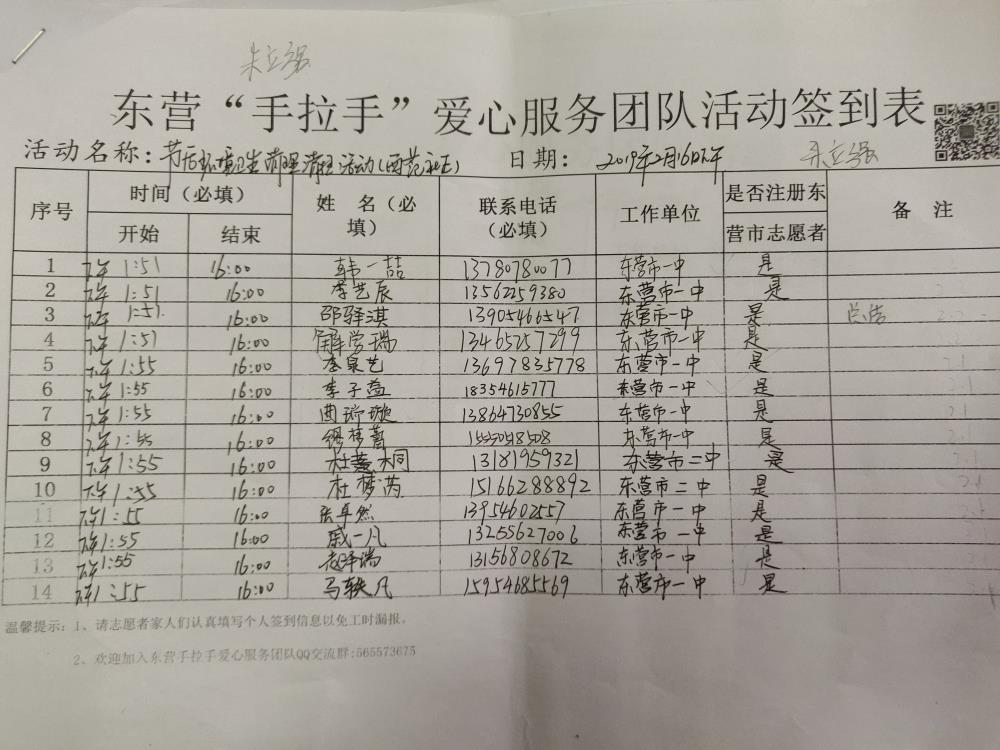 朱立强
东营“手拉手”爱心服务团队活动签到表
活动名称：节后环境卫生清理清扫活动(西苑社区) 日期： 2019年2月16日下午 朱立强
序号 时间（必填） 姓 名（必填） 联系电话（必填） 工作单位 是否注册东营市志愿者 备 注
开始 结束
1 下午 1:51 16:00 韩一喆 13780780077 东营市一中 是
2 下午 1:51 16:00 李艺辰 13562259380 东营市一中 是
3 下午 1:51 16:00 邵驿淇 13905466547 东营市一中 是 总结
4 下午 1:51 16:00 解学瑞 13465257299 东营市一中 是
5 下午 1:55 16:00 李泉艺 13697835778 东营市一中 是
6 下午 1:55 16:00 李子益 18354615777 东营市一中 是
7 下午 1:55 16:00 曲璇 13864730855 东营市一中 是
8 下午 1:55 16:00 东营市一中 是
9 下午 1:55 16:00 杜 桐 13181959321 东营市二中 是
10 下午 1:55 16:00 杜梦芮 15166288892 东营市二中 是
11 下午 1:55 16:00 张卓然 13954602557 东营市一中 是
12 下午 1:55 16:00 戚一凡 13255627006 东营市一中 是
13 下午 1:55 16:00 13156808672 东营市一中 是
14 下午 1:55 16:00 马轶凡 15954685569 东营市一中 是
温馨提示：1、请志愿者家人们认真填写个人签到信息以免工时漏报。
2、欢迎加入东营手拉手爱心服务团队QQ交流群:565573675